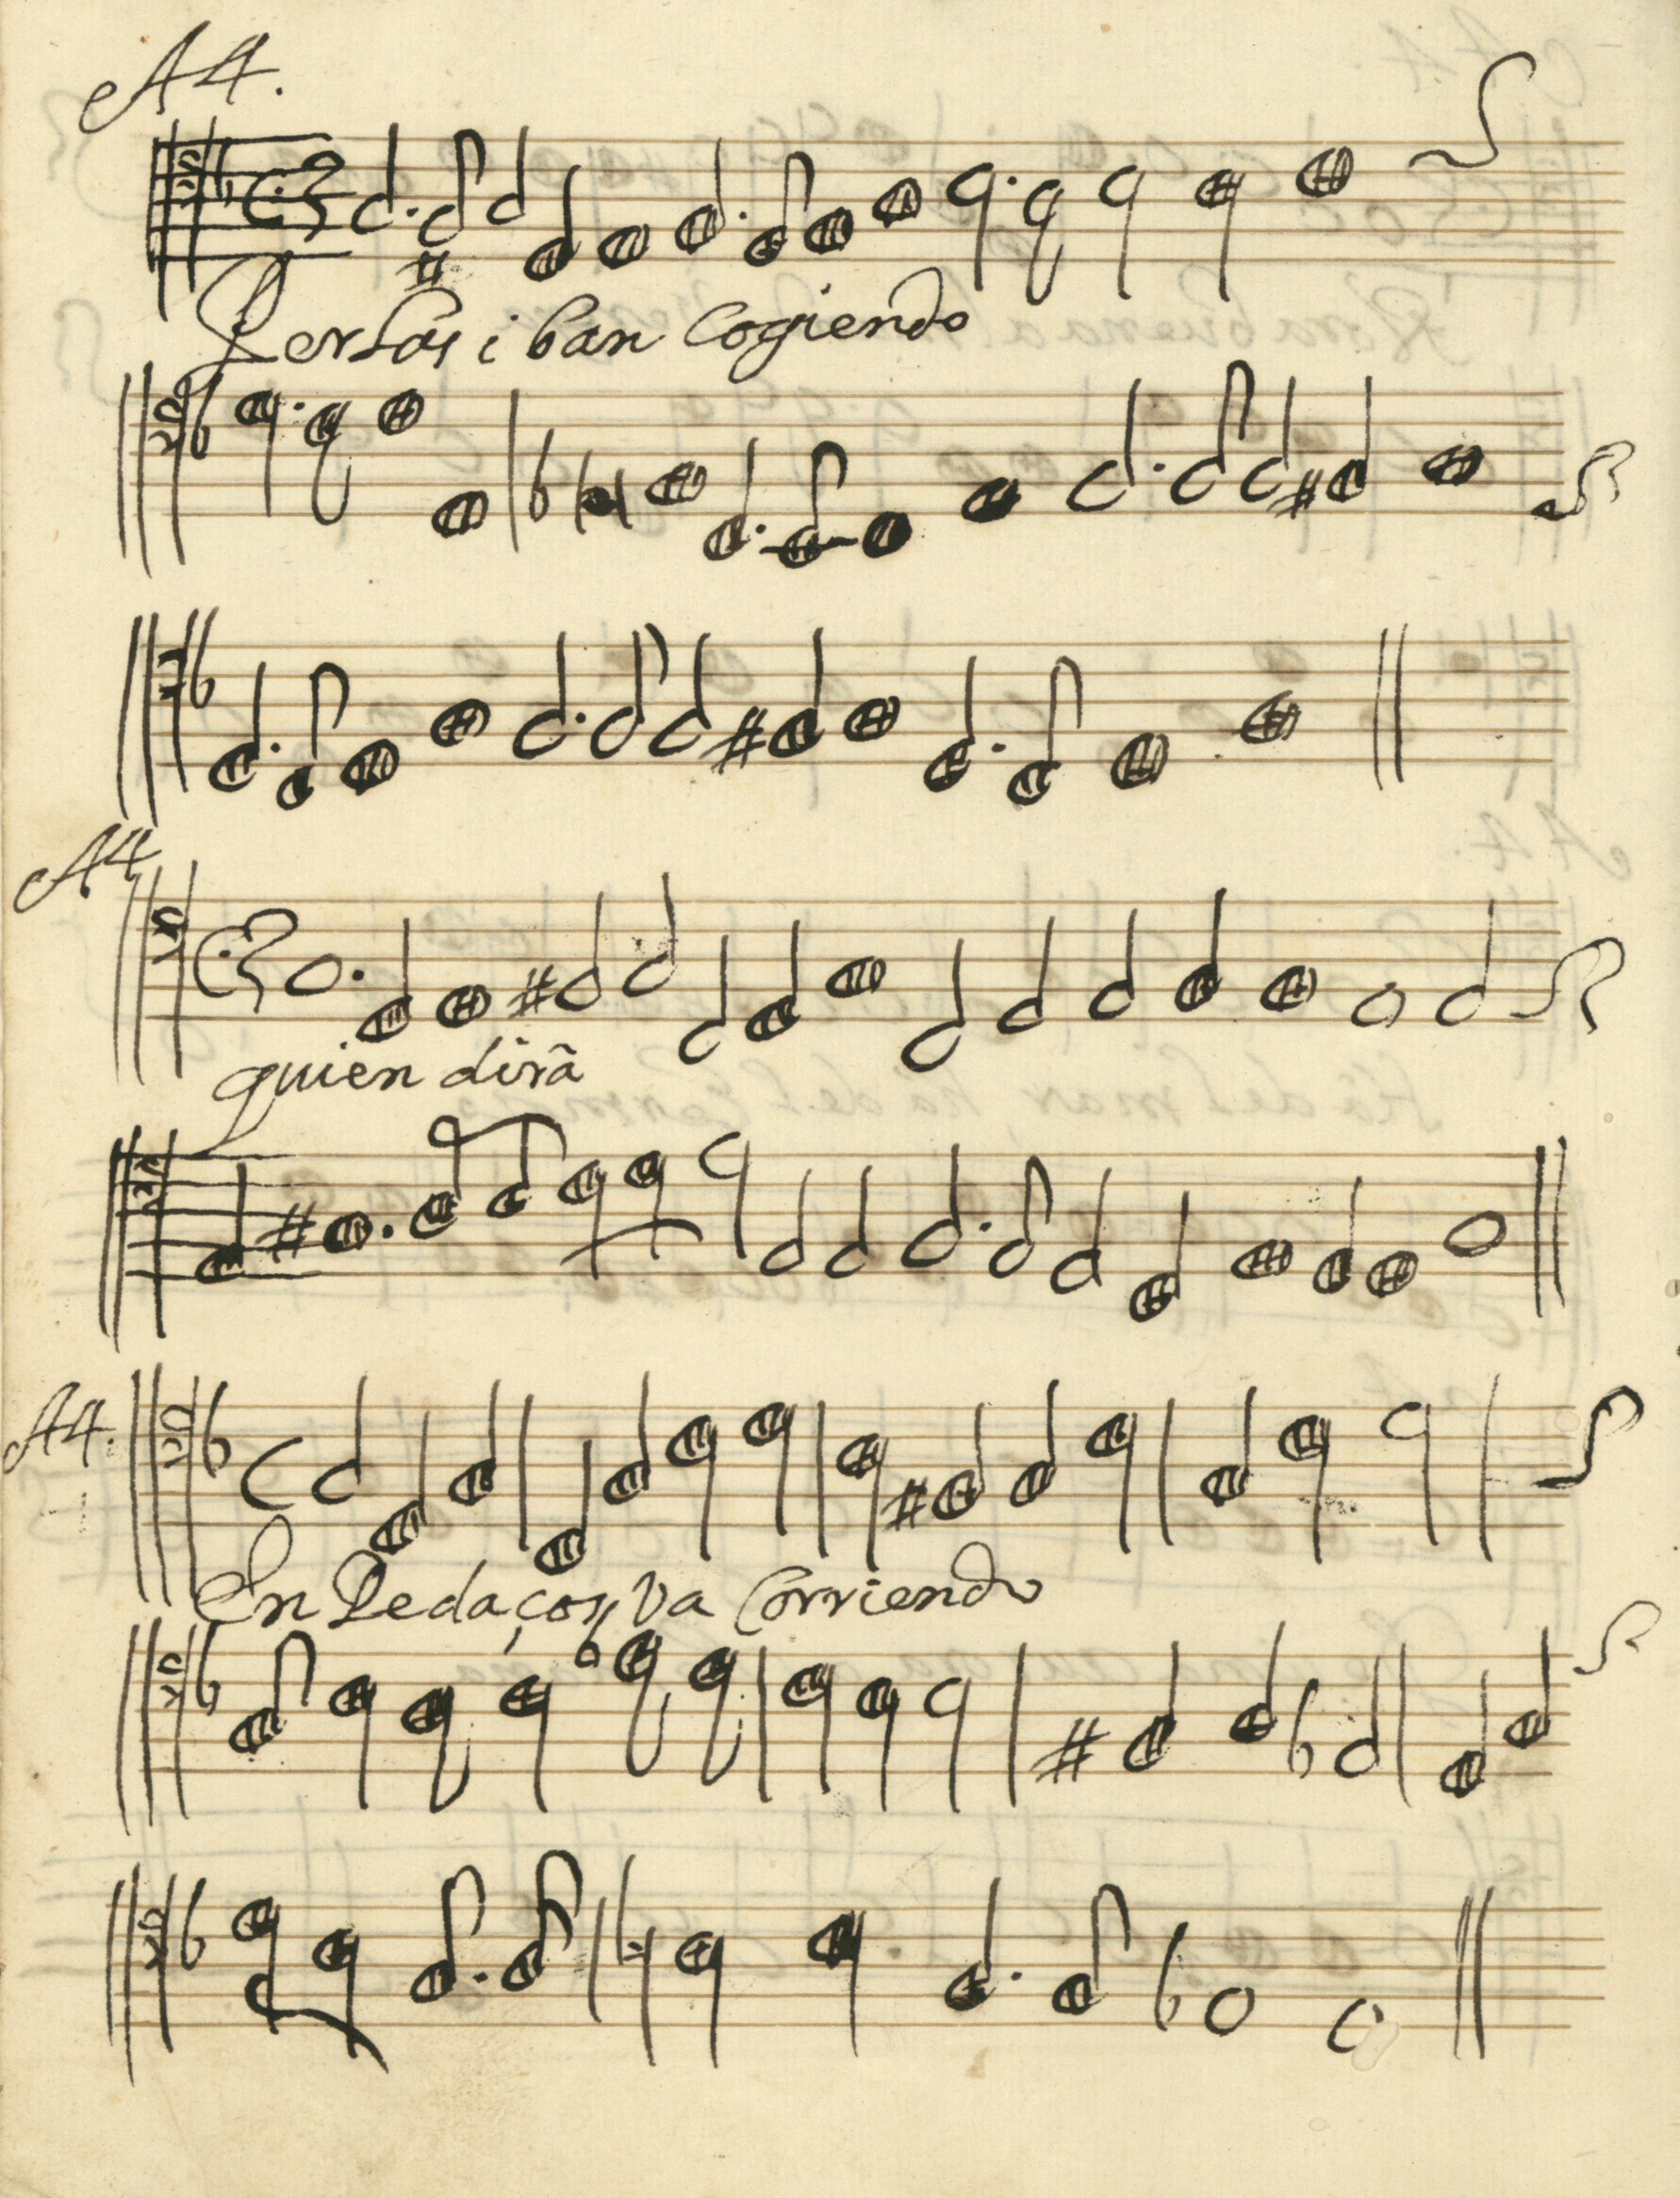 A4.
Perlas iban Cogiendo
A4
quien dirã
A4.
En Pedaços Va Corriendo